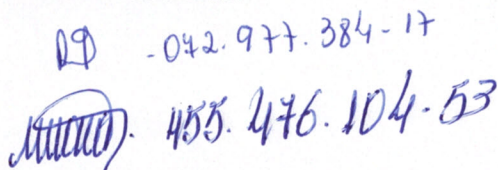 - 072.977.384-17
455.476.104-53